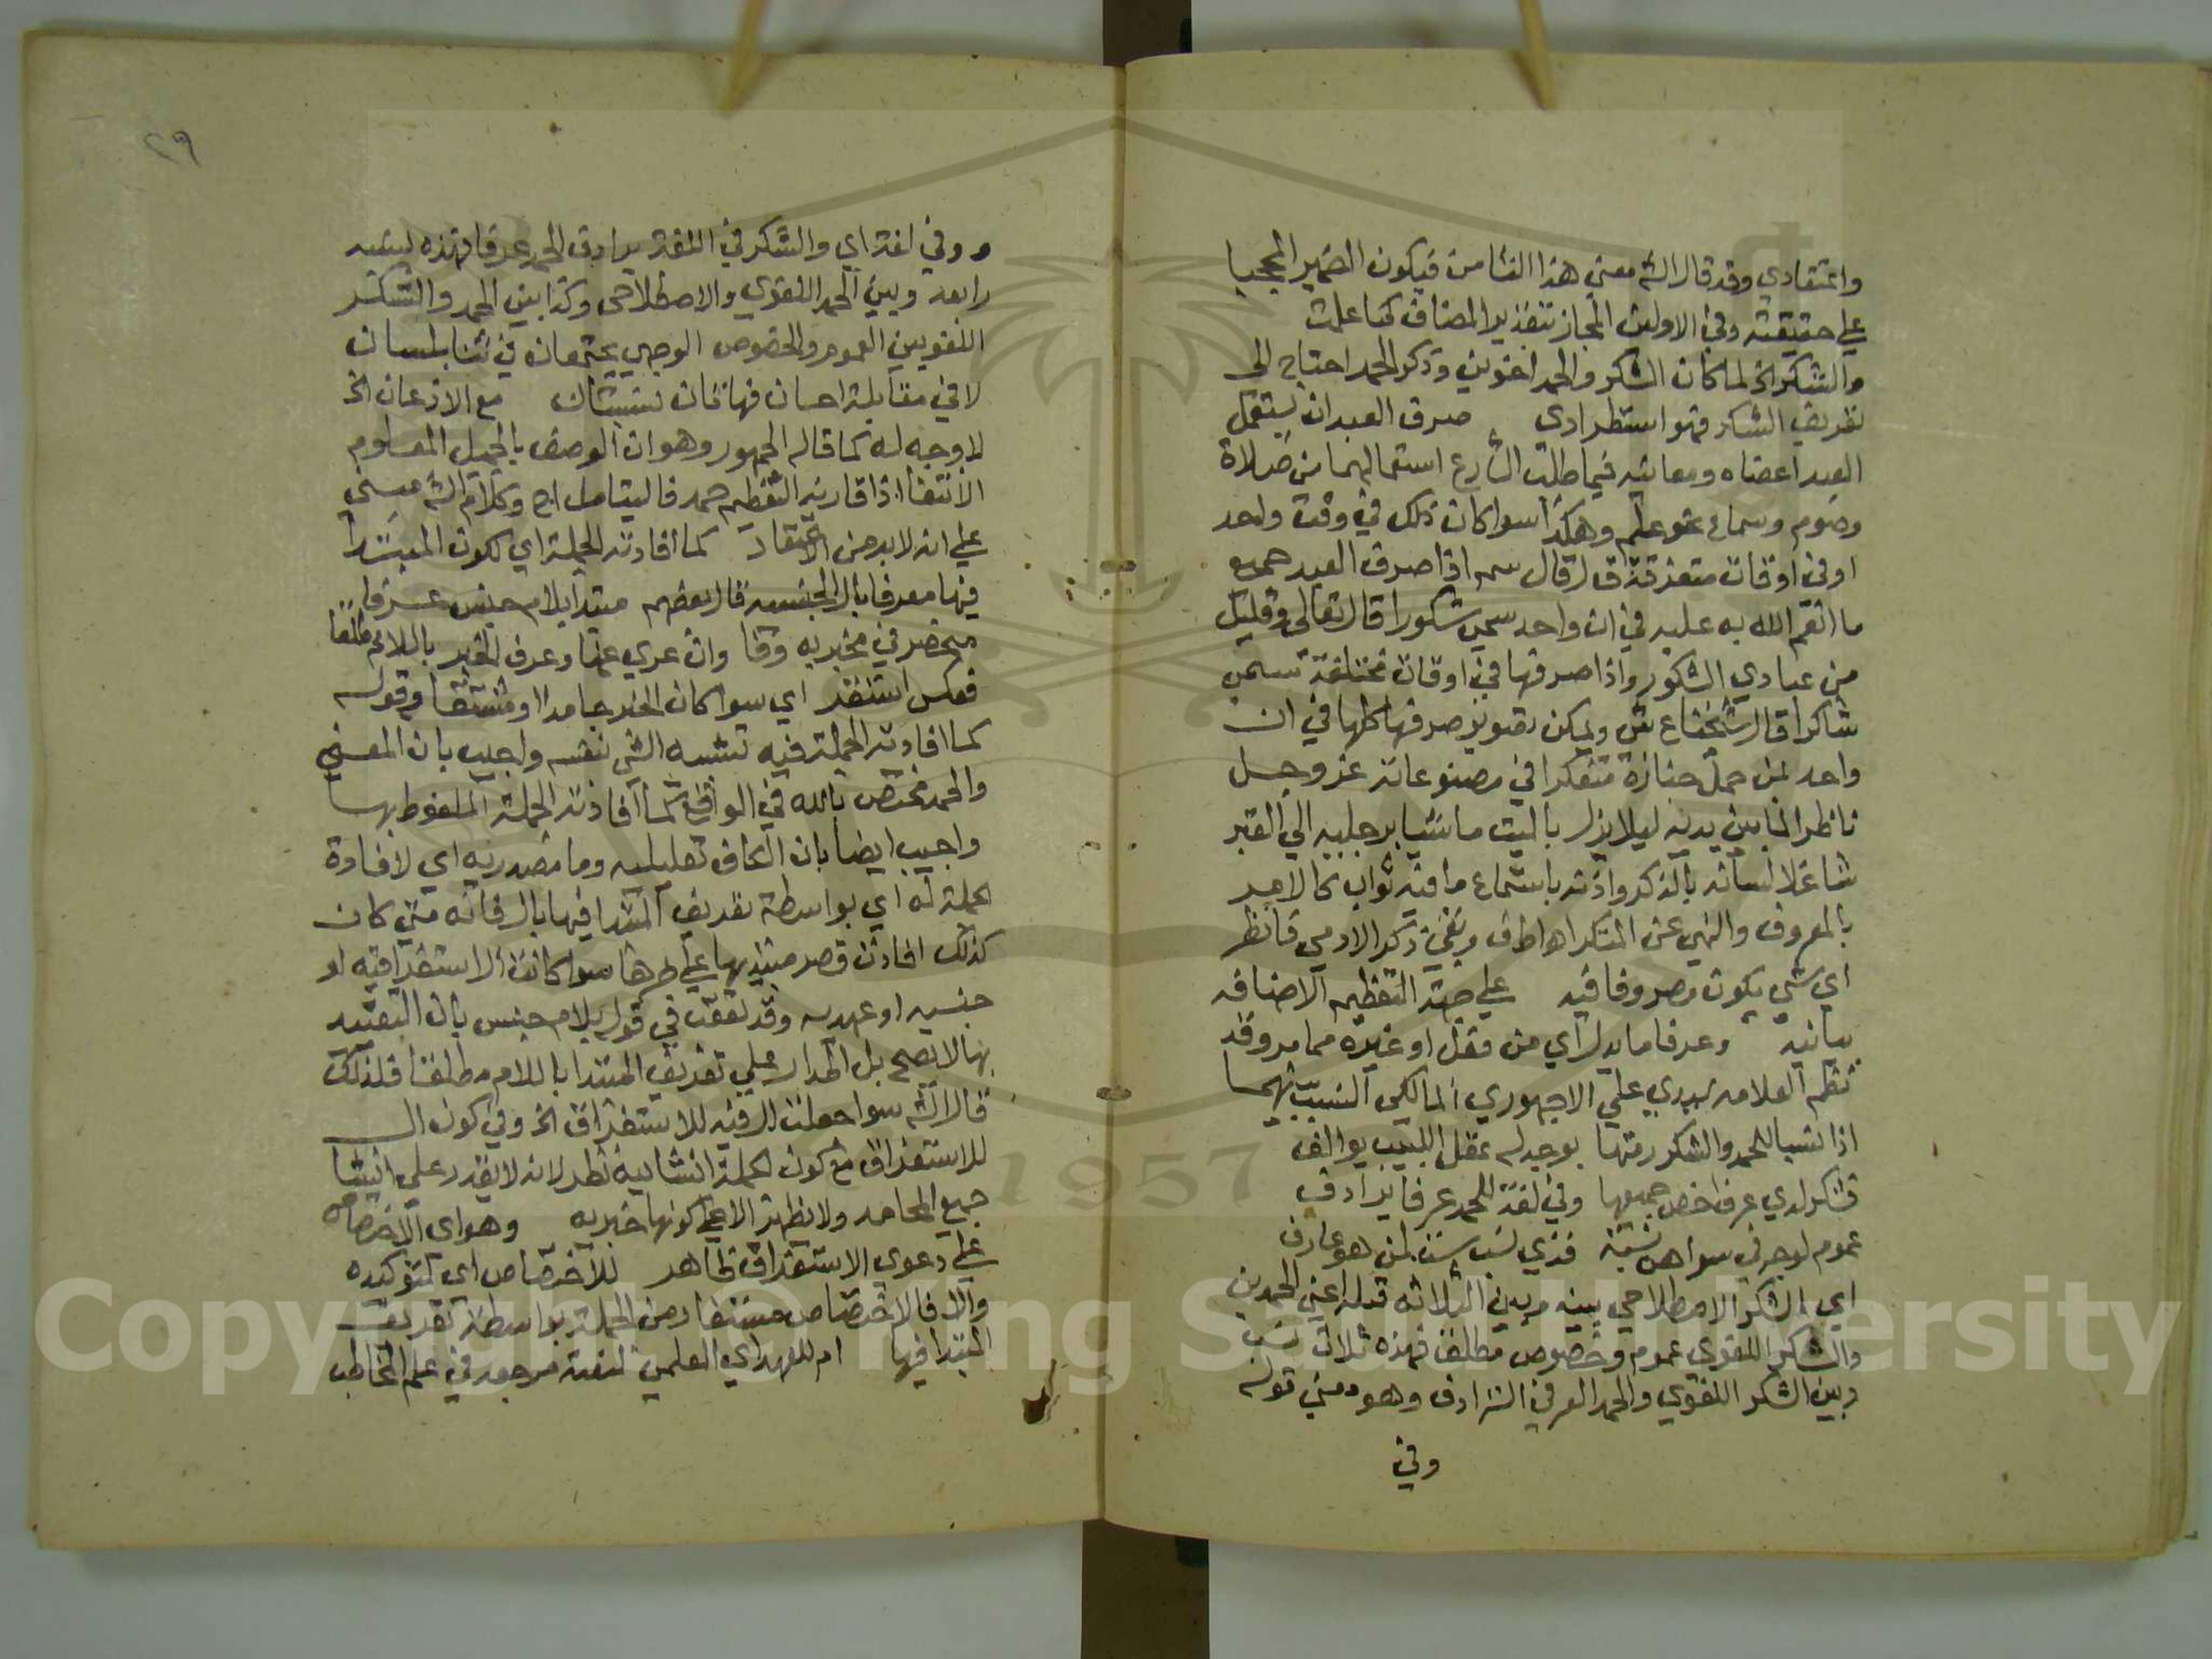 واعتقادي وقد قال الشـ معنى هذا الثنا من فيكون الضمير المحجبا
على حقيقته وفي الاولين المجاز بتقدير المضاف كما علمت
والشكر الخ لما كان الشكر والحمد اخوين وذكر الحمد احتاج الى
تعريف الشكر فهو استطرادى صرف العبد ان يستعمل
العبد اعضاه ومعانيه فيما طلب الشارع استعمالهما من صلاة
وصوم وسماع نحو علم وهكذا سوا كان ذلك في وقت واحد
او في اوقات متفرقة قال سم اذا صرف العبد جميع
ما انعم الله به عليه في ان واحد سمي شكورا قال تعالى وقليل
من عبادي الشكور واذا صرفها في اوقات مختلفة سمي
شاكرا قال شيخنا ع ش ويمكن تصوير صرفها كلها في ان
واحد لمن حمل جنازة متفكرا في مصنوعاته عز وجل
ناظرا لما بين يديه ليلا يزل بالميت ماشيا برجليه الى القبر
شاغلا لسانه بالذكر واذنه باستماع ما فيه ثواب كالامر
بالمعروف والنهي عن المنكر اهـ اطـ ف وبقي ذكر الادمي فانظر
اي شي يكون مصروفا فيه على جهة التعظيم الاضافه
بيانيه وعرفا ما يدل اي من فعل او غيره مما مر وقد
نظم العلامه سيدي علي الاجهوري المالكى النسب بينهما
اذا نسبا للحمد والشكر رمتها بوجه له عقل اللبيب يوالف
فشكر لدي عرف اخص جميعها وفي لغة للحمد عرفا يرادف
عموم لوجه في سواهن نسبة فذي نسب ست لمن هو عارف
اي الشكر الاصطلاحي بينه وبين الثلاثه قبله اعني الحمدين
والشكر اللغوى عموم وخصوص مطلق فهذه ثلاث نسب
وبين الشكر اللغوي والحمد العرفي الترادف وهو معنى قوله
وفي
٢٩
وفي لغة اي والشكر في اللغة يرادف الحمد عرفا فهذه نسبه
رابعه وبين الحمد اللغوي والاصطلاحى وكذا بين الحمد والشكر
اللغويين العموم والخصوص الوجهي يجتمعان في ثنا بلسان
لا في مقابلة احسان فهاتان نسبتان مع الاذعان الخ
لا وجه له كما قاله الجمهور وهو ان الوصف بالجميل المعلوم
الانتفا اذا قارنه التعظيم حمد فاليتامل اج وكلام الشـ مبني
على انه لابد من الاعتقاد كما افادته الجملة اي لكون المبتدا
فيها معرفا بال الجنسيه قال بعضهم مبتدا بلام جنس عرفا
منحصر في مخبر به وفا وان عري عنها وعرف الخبر باللام مطلقا
فعكس استقر اي سوا كان الخبر جامدا او مشتقا وقوله
كما افادته الجملة فيه تشبيه الشي بنفسه واجيب بان المعنى
والحمد مختص بالله في الواقع كما افادته الجملة الملفوظ بها
واجيب ايضا بان الكاف تعليليه وما مصدريه اي لافادة
الجملة له اي بواسطة تعريف المبتدا فيها بال فانه متى كان
كذلك افادت قصر مبتديها على خبرها سوا كانت ال استغراقيه او
جنسيه او عهديه وقد تعقب في قوله بلام جنس بان التقييد
بها لا يصح بل المدار على تعريف المبتدا باللام مطلقا فلذلك
قال الشـ سوا جعلت ال فيه للاستغراق الخ وفي كون ال
للاستغراق مع كون الجملة انشائيه نظر لانه لا يقدر على انشا
جميع المحامد ولا يظهر الا على كونها خبريه وهو اي الاختصاص
على دعوى الاستغراق ظاهر للاختصاص اى لتوكيده
والا فالاختصاص مستفاد من الجملة بواسطة تعريف
المبتدا فيها ام للعهد اي العلمي لتعينه مرجعه في علم المخاطب
Copyright © King Saud University
1957